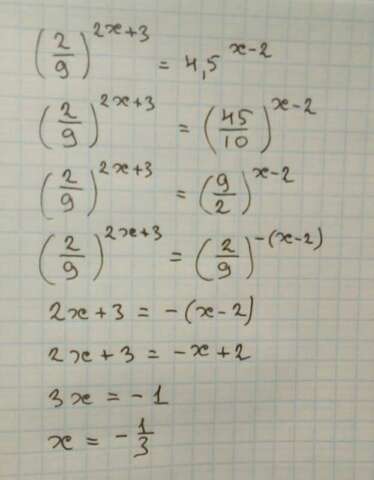 (2/9)^(2x+3) = 4,5^(x-2)
(2/9)^(2x+3) = (45/10)^(x-2)
(2/9)^(2x+3) = (9/2)^(x-2)
(2/9)^(2x+3) = (2/9)^(-(x-2))
2x+3 = -(x-2)
2x+3 = -x+2
3x = -1
x = -1/3